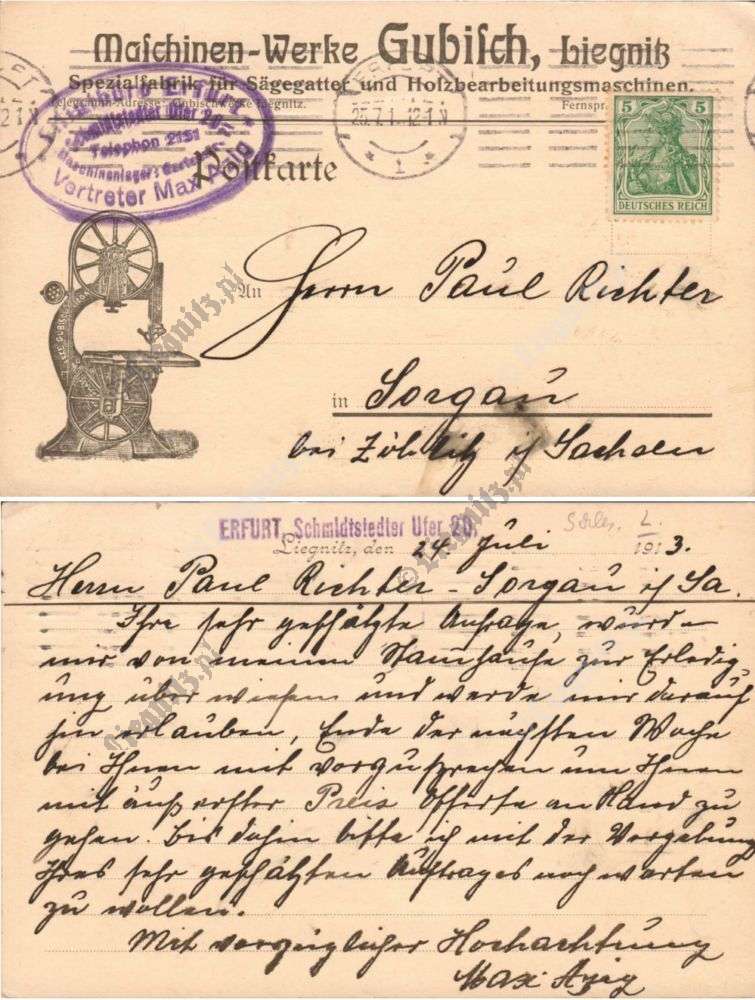 Maschinen-Werke Gubisch, Liegnitz
Spezialfabrik für Sägegatter und Holzbearbeitungsmaschinen.
Telegramm-Adresse: Gubischwerke Liegnitz. Fernspr.
Schmidtstedter Ufer 20
Telephon 2131
Vertreter Max
ERFURT
25.7.1 12-1N
1
5 5
DEUTSCHES REICH
Postkarte
An Herrn Paul Richter
in Sorgau
bei Zöblitz i/ Sachsen
ERFURT, Schmidtstedter Ufer 20.
Liegnitz, den 24. Juli 1913.
Herrn Paul Richter - Sorgau i/ Sa.
Ihre sehr geschätzte Anfrage, wurde
mir von meinem Stamhause zur Erledig
ung über wiesen und werde mir darauf
hin erlauben, Ende der nächsten Woche
bei Ihnen mit vorzusprechen um Ihnen
mit äußerster Preis Offerte an Hand zu
gehen. Bis dahin bitte ich mit der Vergebung
Ihres sehr geschätzten Auftrages noch warten
zu wollen.
Mit vorzüglicher Hochachtung
Max
© Liegnitz.pl